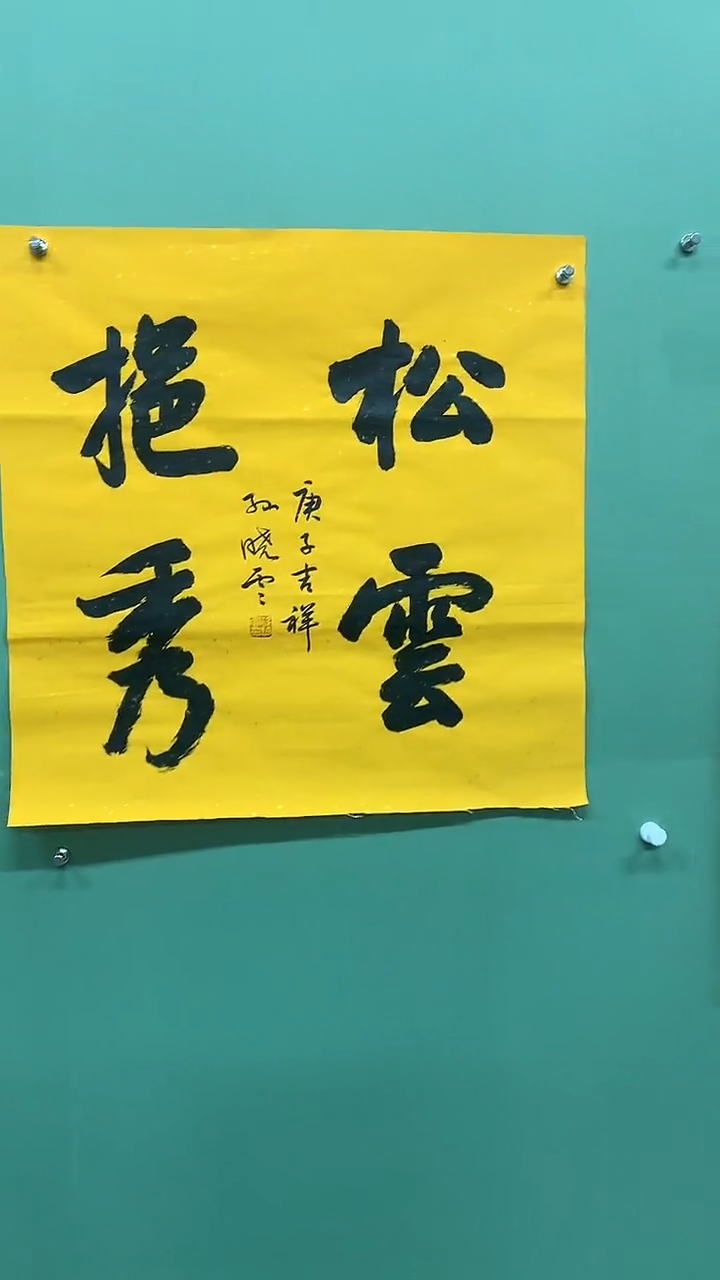 松雲
挹秀
庚子吉祥
孙晓云